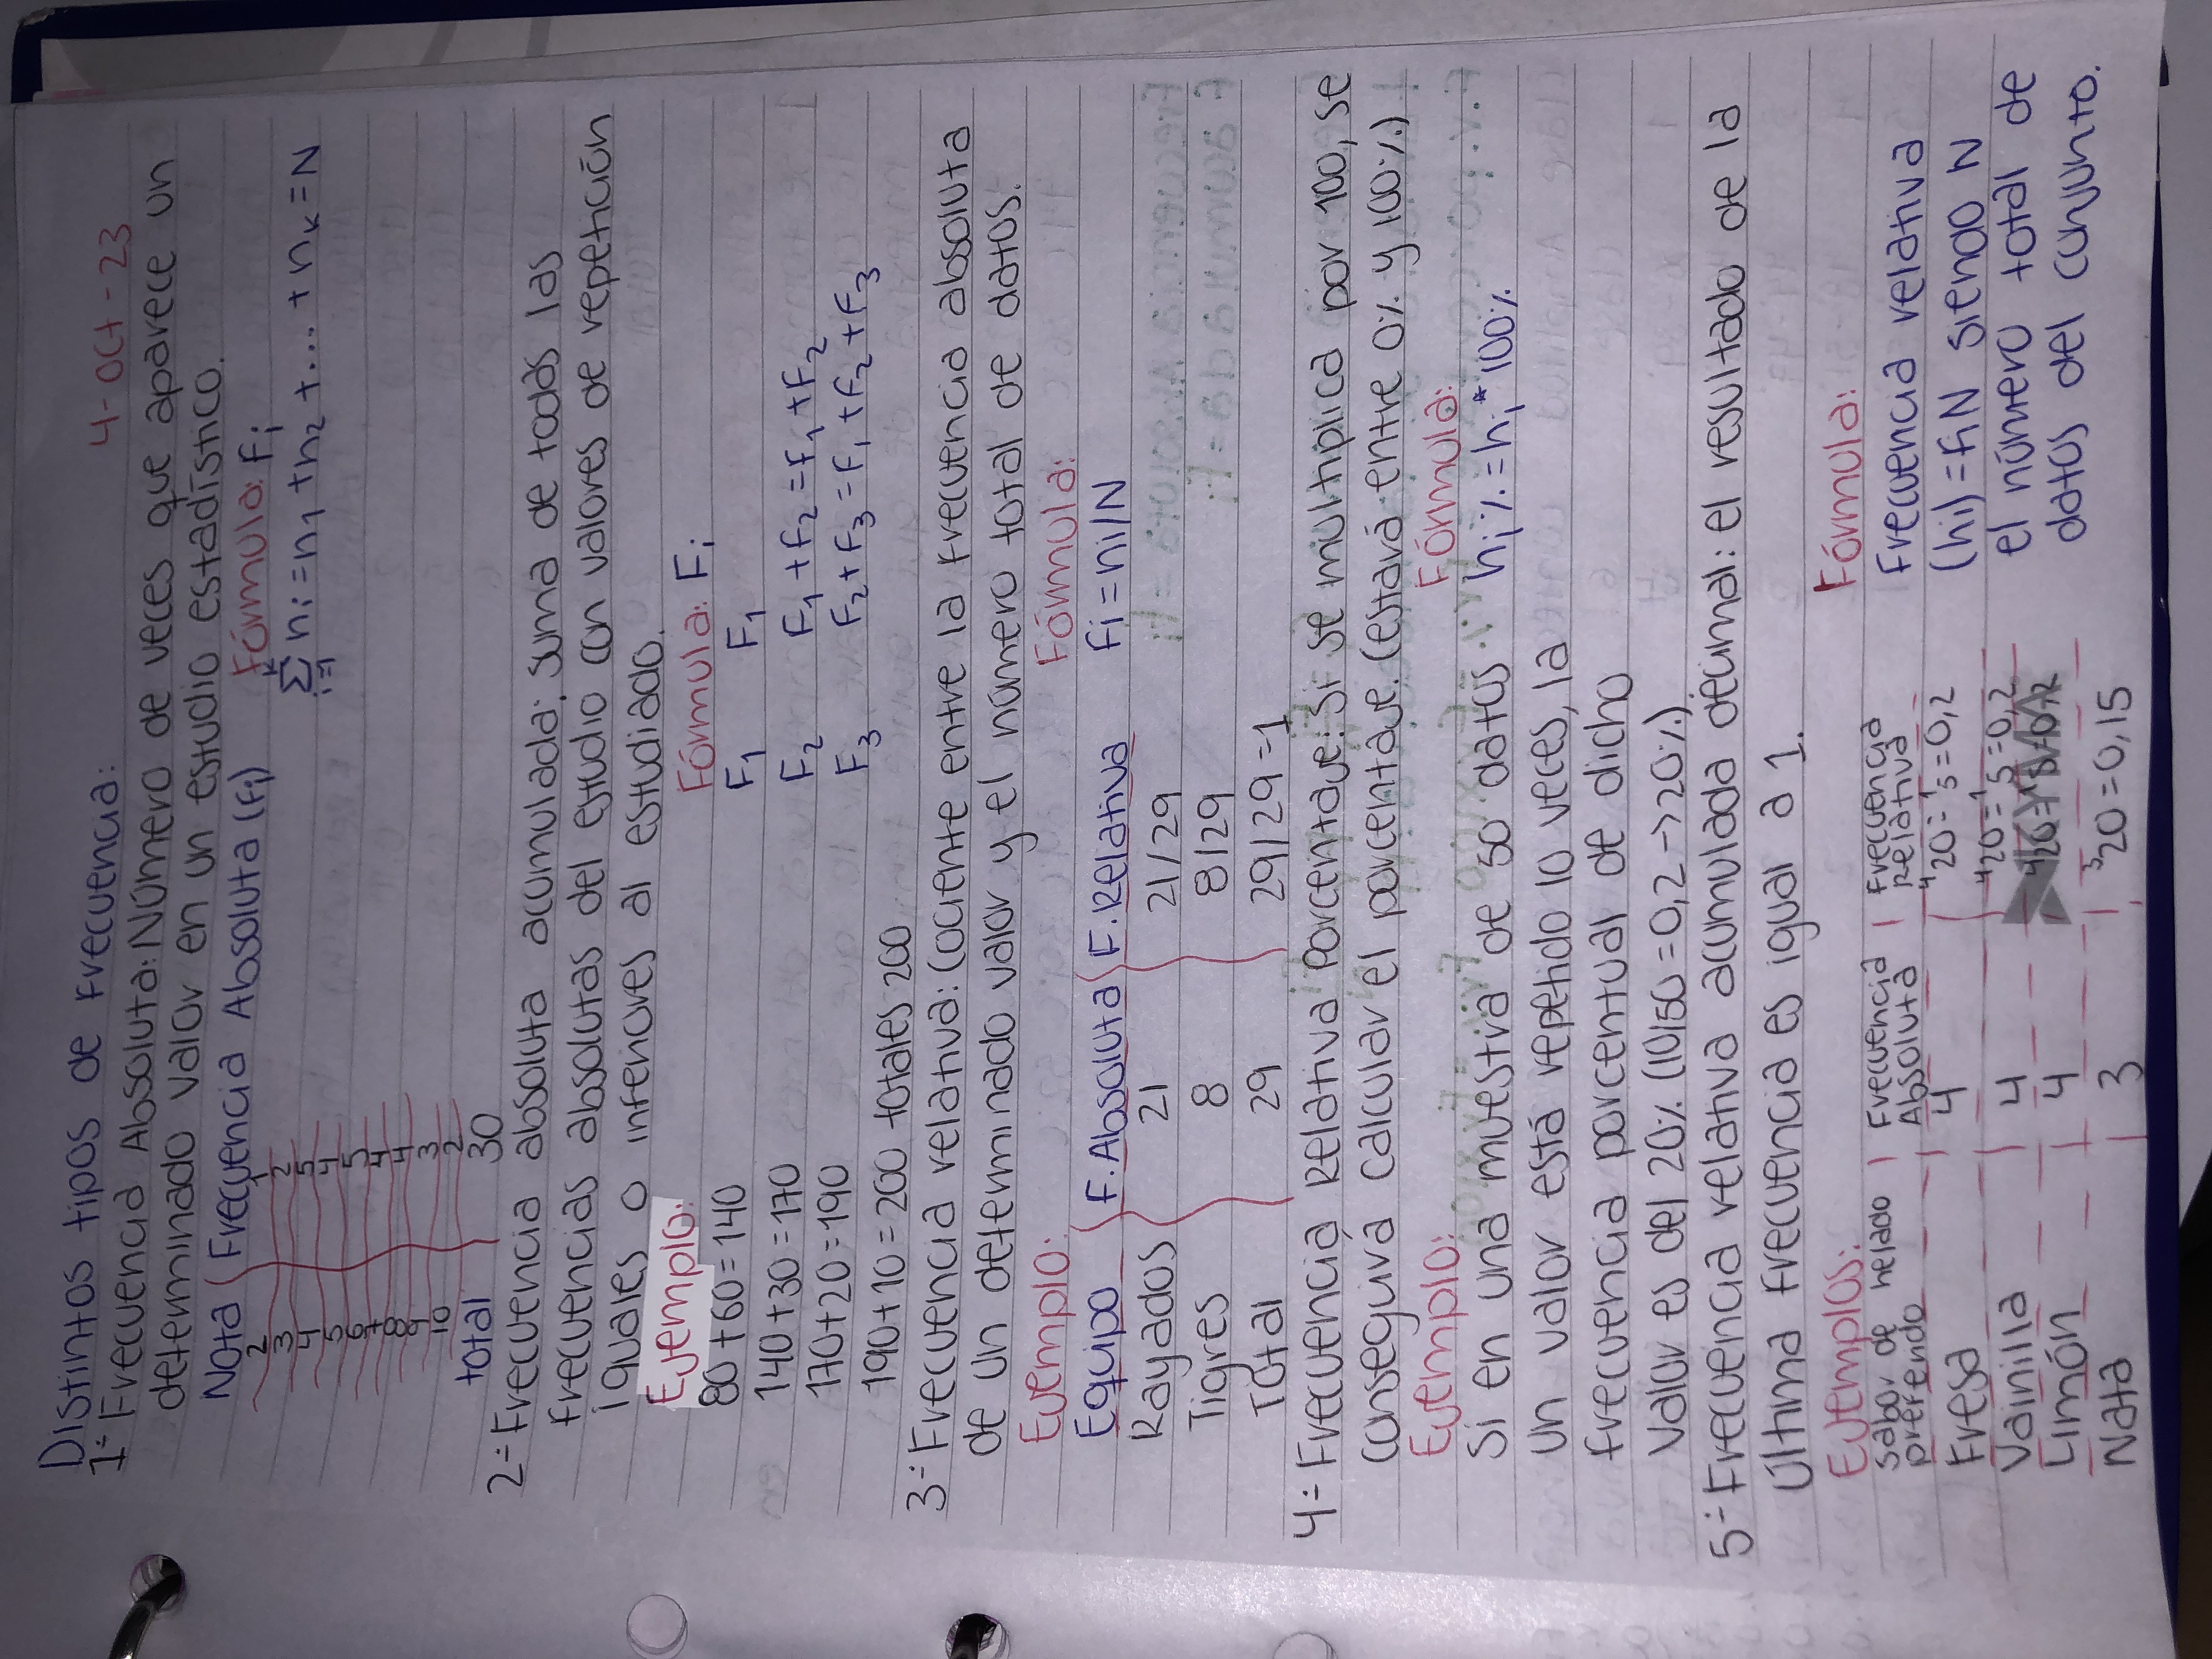 4-Oct-23
Distintos tipos de Frecuencia:
1=Frecuencia Absoluta: Número de veces que aparece un
determinado valor en un estudio estadístico.
Nota Frecuencia Absoluta (Fi) Fórmula: Fi
2 1
3 2
4 5
5 4
6 5
7 4
8 4
9 3
10 2
total 30
k
∑ ni = n1 + n2 + ... + nk = N
i=1
2=Frecuencia absoluta acumulada: suma de todas las
frecuencias absolutas del estudio con valores de repetición
iguales o inferiores al estudiado.
Ejemplo: Fórmula: Fi
80+60=140 F1 F1
140+30=170 F2 F1+F2=F1+F2
170+20=190 F3 F2+F3=F1+F2+F3
190+10=200 totales 200
3=Frecuencia relativa: Cociente entre la frecuencia absoluta
de un determinado valor y el número total de datos.
Ejemplo: Fórmula:
Equipo F. Absoluta F. Relativa fi = ni/N
Rayados 21 21/29
Tigres 8 8/29
Total 29 29/29=1
4=Frecuencia Relativa Porcentaje: Si se multiplica por 100, se
conseguirá calcular el porcentaje. (estará entre 0% y 100%)
Ejemplo: Fórmula:
Si en una muestra de 50 datos hi% = hi*100%
un valor está repetido 10 veces, la
frecuencia porcentual de dicho
valor es del 20% (10/50=0,2->20%)
5=Frecuencia relativa acumulada décimal: el resultado de la
última frecuencia es igual a 1.
Ejemplos: Fórmula:
Sabor de helado preferendo | Frecuencia Absoluta | Frecuencia Relativa
Fresa 4 4 20=1 5=0,2
Vainilla 4 4 20=1 5=0,2
Limón 4
Nata 3 3 20=0,15
Frecuencia relativa
(hi)=fiN siendo N
el número total de
datos del conjunto.